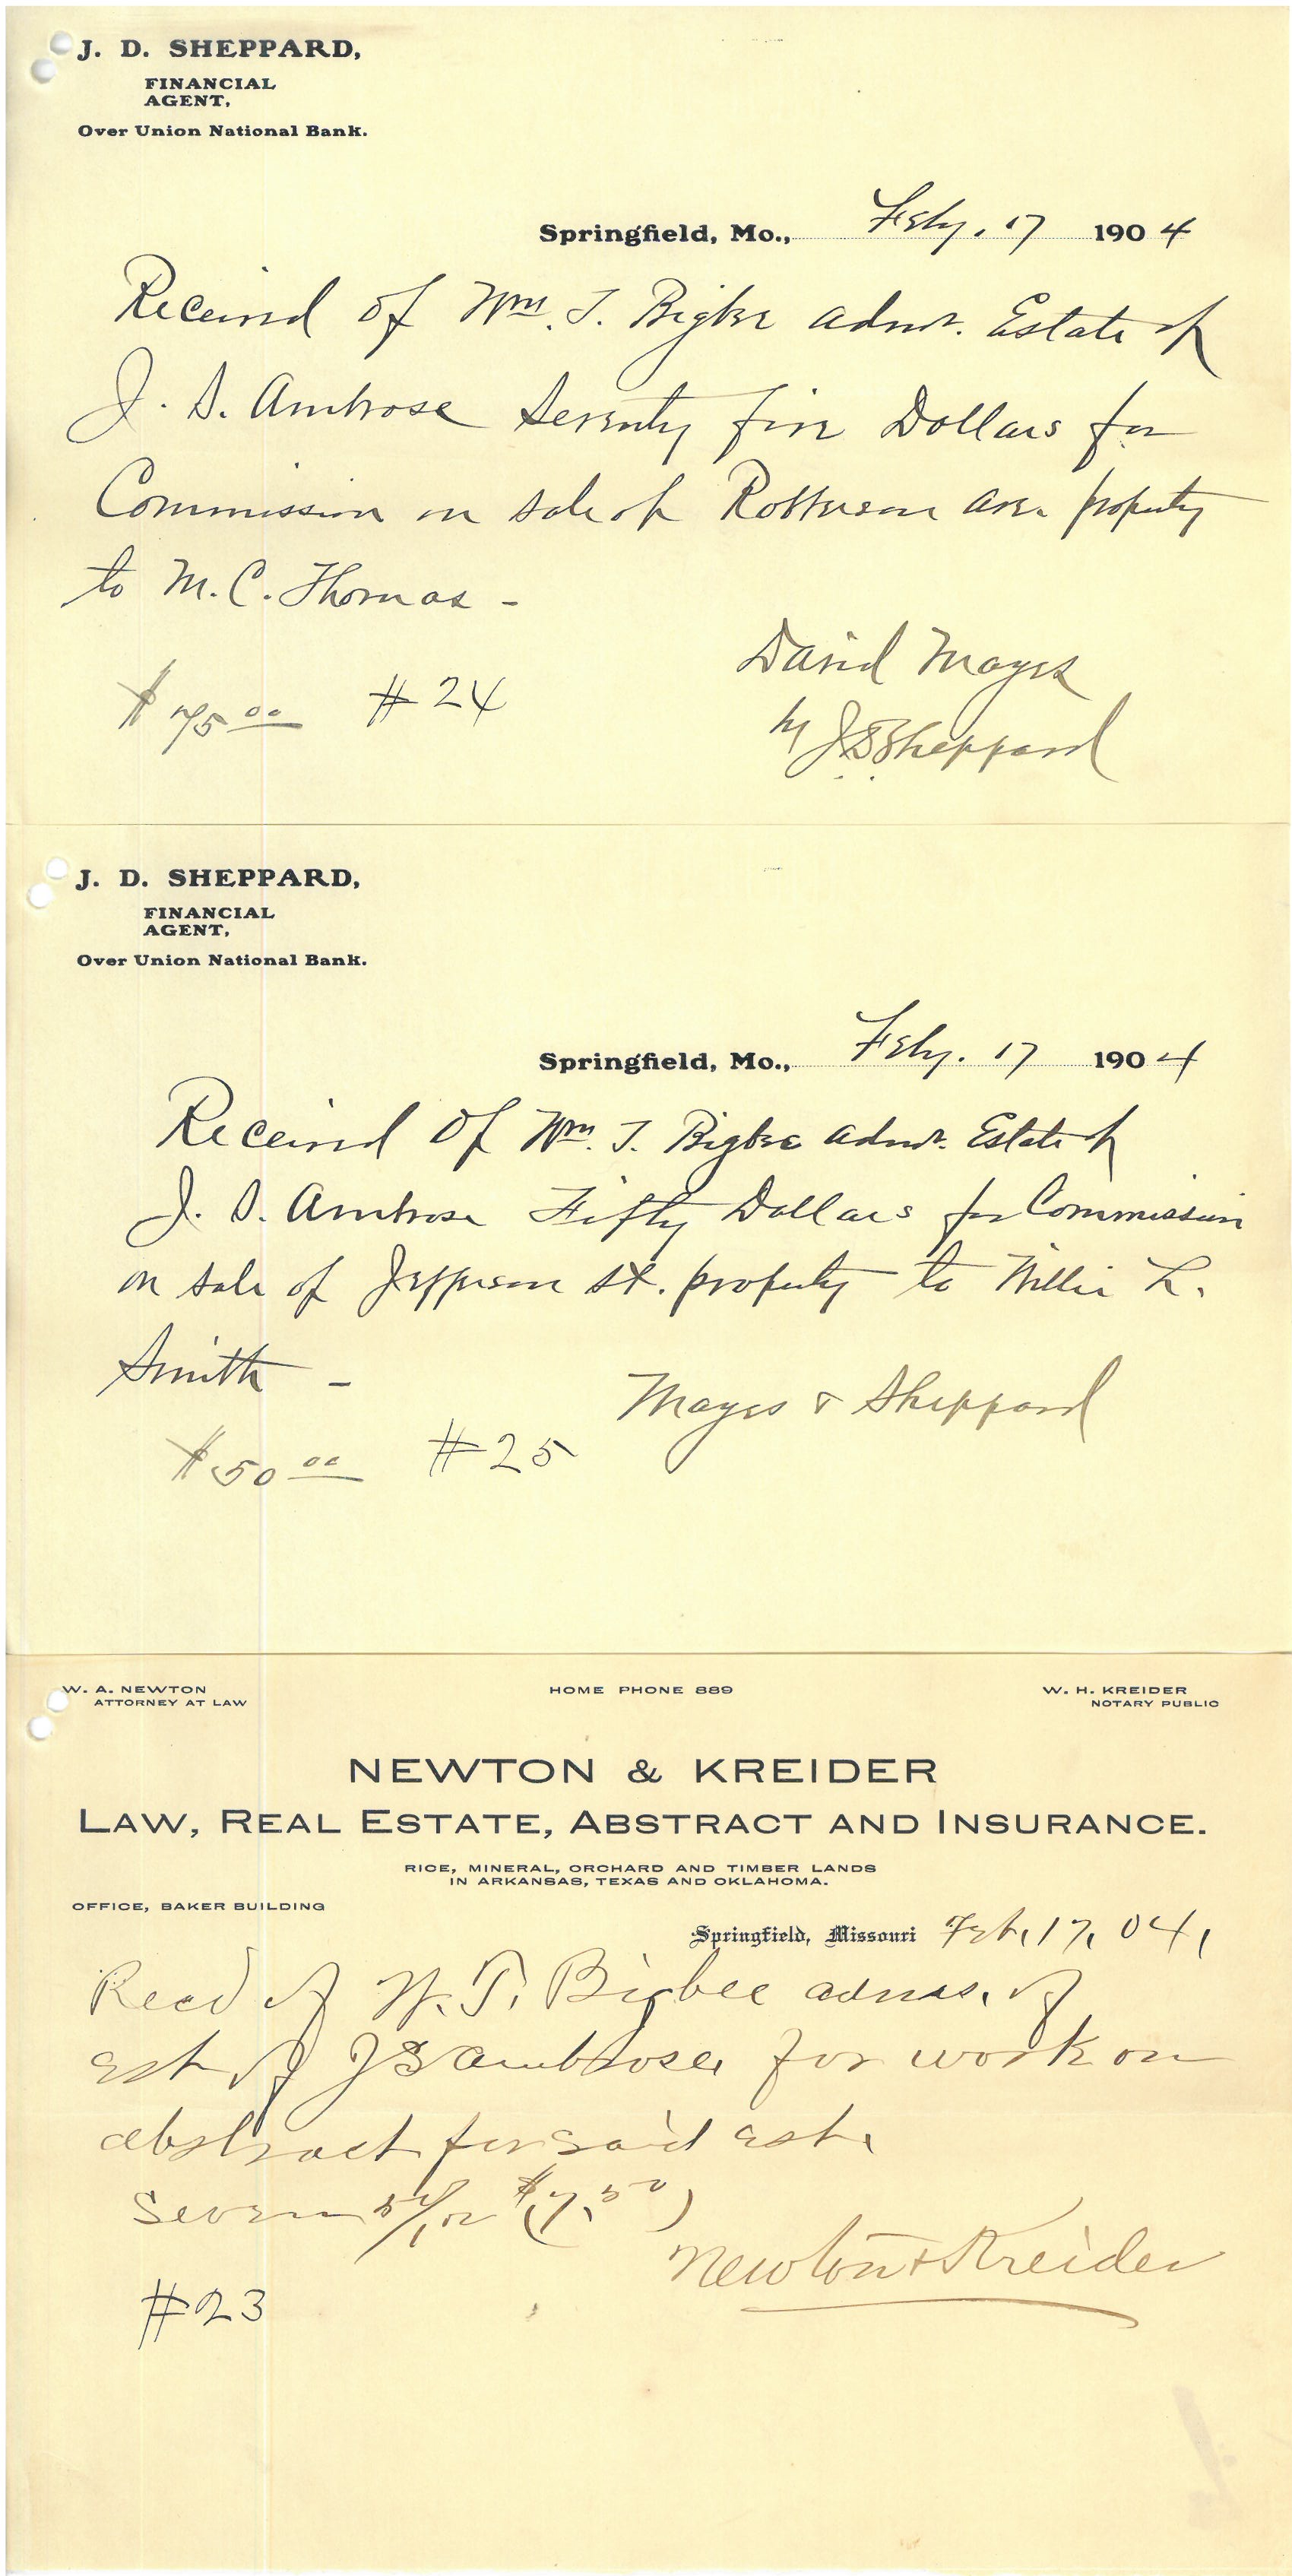 J. D. SHEPPARD,
FINANCIAL
AGENT,
Over Union National Bank.
Springfield, Mo., Feby. 17 1904
Received of Wm. T. Bigbee admr. Estate of
J. S. Ambrose Seventy five Dollars for
Commission on sale of Robberson ave. property
to M. C. Thomas -
$75.00 #24
David Mayes
by J D Sheppard
J. D. SHEPPARD,
FINANCIAL
AGENT,
Over Union National Bank.
Springfield, Mo., Feby. 17 1904
Received of Wm. T. Bigbee admr. Estate of
J. S. Ambrose Fifty Dollars for Commission
on sale of Jefferson st. property to Willie L.
Smith -
Mayes & Sheppard
$50.00 #25
W. A. NEWTON HOME PHONE 889 W. H. KREIDER
ATTORNEY AT LAW NOTARY PUBLIC
NEWTON & KREIDER
LAW, REAL ESTATE, ABSTRACT AND INSURANCE.
RICE, MINERAL, ORCHARD AND TIMBER LANDS
IN ARKANSAS, TEXAS AND OKLAHOMA.
OFFICE, BAKER BUILDING
Springfield, Missouri Feb, 17, 04,
Recd of W. T. Bigbee of
est of J S Ambrose, for work on
abstract for said est.
Seven 50/100 ($7.50)
Newton & Kreider
#23